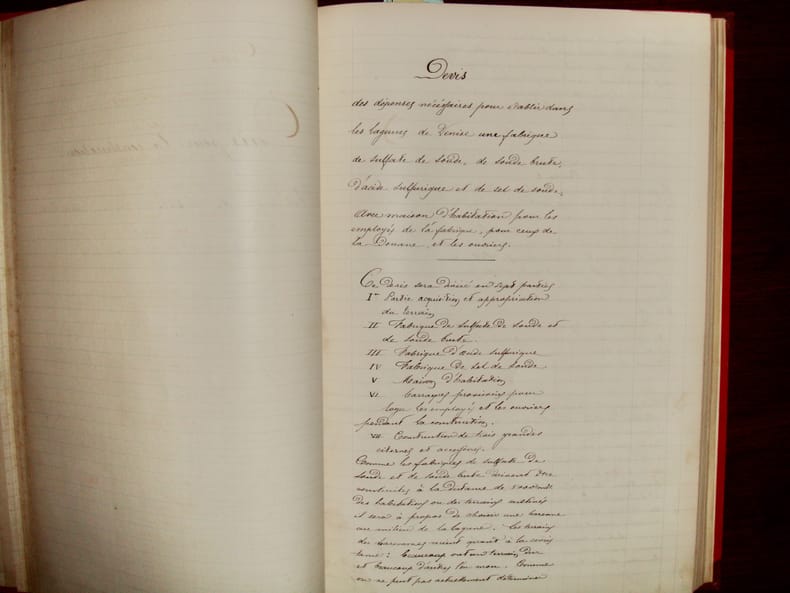 Devis
des dépenses nécessaires pour établir dans
les lagunes de Venise une fabrique
de sulfate de soude, de soude brute,
d'acide sulfurique et de sel de soude,
Avec maison d'habitation pour les
employés de la fabrique, pour ceux de
la Douane, et les ouvriers.
Ce Devis sera divisé en sept parties
Ire Partie acquisition et appropriation
du terrain
II Fabrique de sulfate de soude et
de soude brute.
III Fabrique d'acide sulfurique
IV Fabrique de sel de soude
V Maison d'habitation
VI provisoires pour
loger les employés et les ouvriers
pendant la construction.
VII Construction de trois grandes
citernes et
Comme les fabriques de sulfate de
soude et de soude brute doivent être
construites à la distance de
Des habitations ou des terrains cultivés
il sera à propos de choisir une
au milieu de la lagune. Les terrains
des quant à la
: Beaucoup ont un terrain dur
et beaucoup d'autres l'ont mou. Comme
on ne peut pas actuellement déterminer